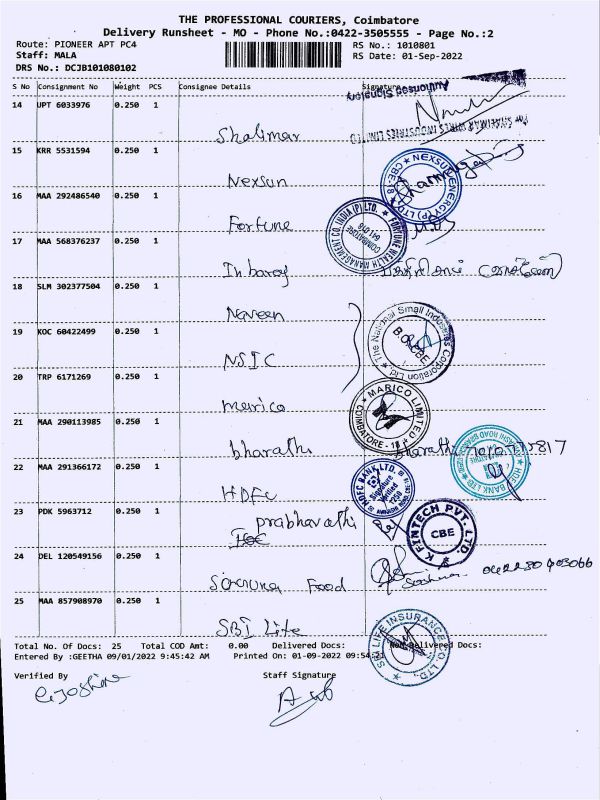 THE PROFESSIONAL COURIERS, Coimbatore
Delivery Runsheet - MO - Phone No.:0422-3505555 - Page No.:2
Route: PIONEER APT PC4
RS No.: 1010801
Staff: MALA
RS Date: 01-Sep-2022
DRS No.: DCJB101080102
S No Consignment No Weight PCS Consignee Details Signature
Authorised Signatory
14 UPT 6033976 0.250 1
For SHALIMAR WIRES INDUSTRIES LIMITED
Shalimar
15 KRR 5531594 0.250 1
NEXSUN ENERGY (P) LTD. CBE-18
Nexsun
16 MAA 292486540 0.250 1
FORTUNE HEALTH MANAGEMENT CO. INDIA (P) LTD. COIMBATORE 641 018
Fortune
17 MAA 568376237 0.250 1
Inbaraj
18 SLM 302377504 0.250 1
Naveen
The National Small Industries Corporation Ltd B.O. CBE
19 KOC 60422499 0.250 1
NSIC
20 TRP 6171269 0.250 1
MARICO LIMITED COIMBATORE - 18
marico
21 MAA 290113985 0.250 1
bharathi
bharathi
HDFC BANK LTD.
22 MAA 291366172 0.250 1
HDFC BANK LTD. Signature Verified
HDFC
23 PDK 5963712 0.250 1
K FINTECH PVT. LTD. CBE
prabhavathi
24 DEL 120549156 0.250 1
Food
25 MAA 857908970 0.250 1
SBI LIFE INSURANCE CO. LTD.
SBI Life
Total No. Of Docs: 25 Total COD Amt: 0.00 Delivered Docs: Non Delivered Docs:
Entered By :GEETHA 09/01/2022 9:45:42 AM Printed On: 01-09-2022 09:54:21
Verified By Staff Signature